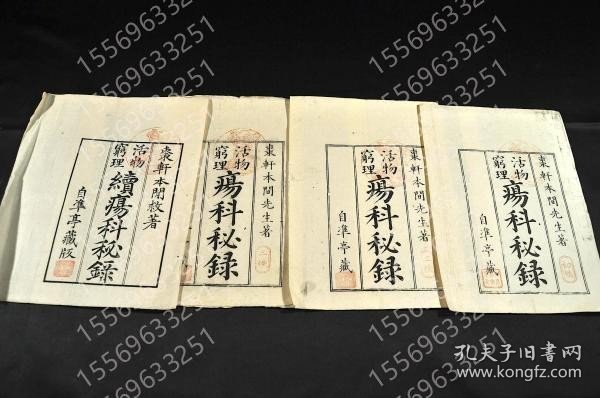 棗軒本間救著
活物
窮理
續瘍科秘録
自準亭藏版
棗軒本間先生著
活物
窮理
瘍科秘録
棗軒本間先生著
活物
窮理
瘍科秘録
自準亭藏
棗軒本間先生著
活物
窮理
瘍科秘録
自準亭藏
15569633251
15569633251
15569633251
15569633251
15569633251
15569633251
15569633251
15569633251
15569633251
孔夫子旧书网
www.kongfz.com